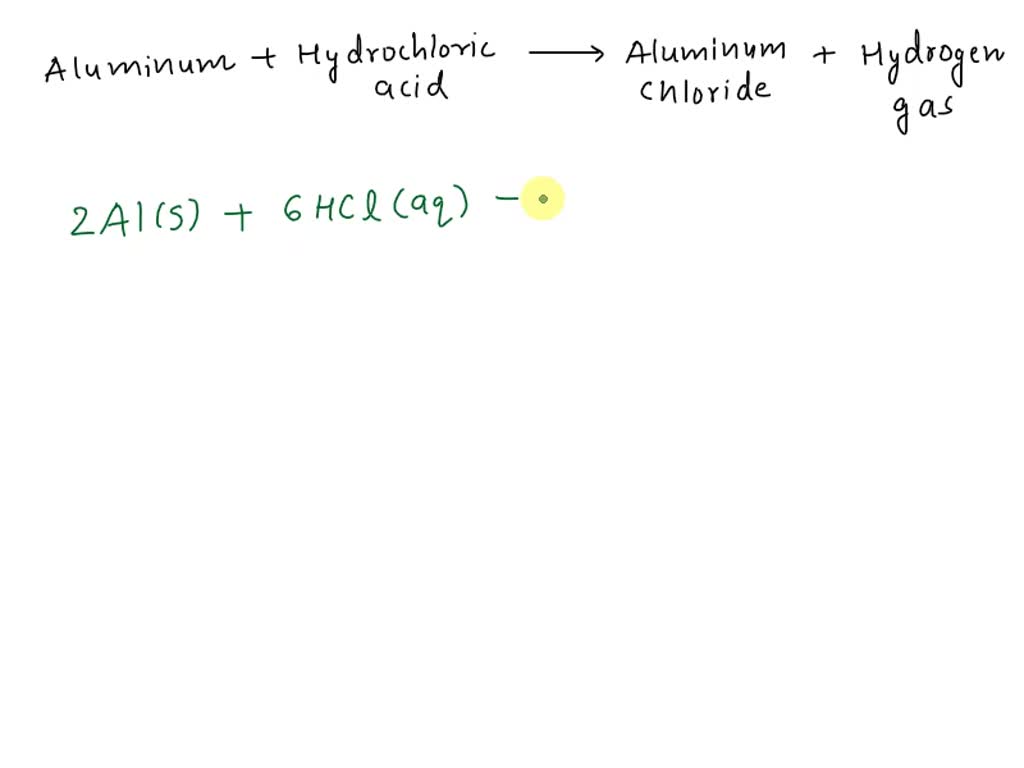 Aluminum + Hydrochloric acid ⟶ Aluminum chloride + Hydrogen gas
2Al(s) + 6HCl(aq) –